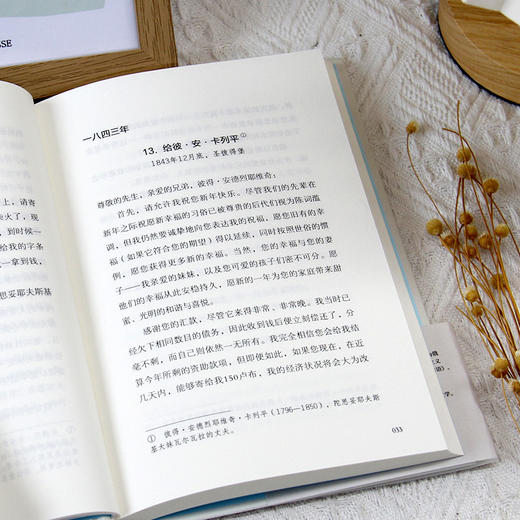 SSE
上，请寄
火了，现
到时候一
给我的字条
一拿到钱，
思妥耶夫斯基
一八四三年
13. 给彼·安·卡列平①
1843年12月底，圣彼得堡
尊敬的先生，亲爱的兄弟，彼得·安德烈耶维奇：
首先，请允许我祝您新年快乐。尽管我们的先辈在
新年之际祝愿新幸福的习俗已被尊贵的后代们视为陈词滥
调，但我仍然要诚挚地向您表达我的祝福，愿您旧有的幸
福（如果它符合您的期望）得以延续，同时按照世俗的惯
例，愿您获得更多新的幸福。当然，您的幸福与您的妻
子——我亲爱的妹妹，以及您可爱的孩子们密不可分。愿
他们的幸福从此安稳持久，愿新的一年为您的家庭带来甜
蜜、光明的和谐与喜悦。
感谢您的汇款，尽管它来得非常、非常晚。我当时已
经欠下相同数目的债务，因此收到钱后便立刻偿还了，分
毫不剩，而自己则依然一无所有。我完全相信您会给我结
算今年所剩的资助款项，但即使如此，如果您现在，在近
几天内，能够寄给我150卢布，我的经济状况将会大为改
① 彼得·安德烈耶维奇·卡列平（1796—1850），陀思妥耶夫斯
基大妹瓦尔瓦拉的丈夫。
033